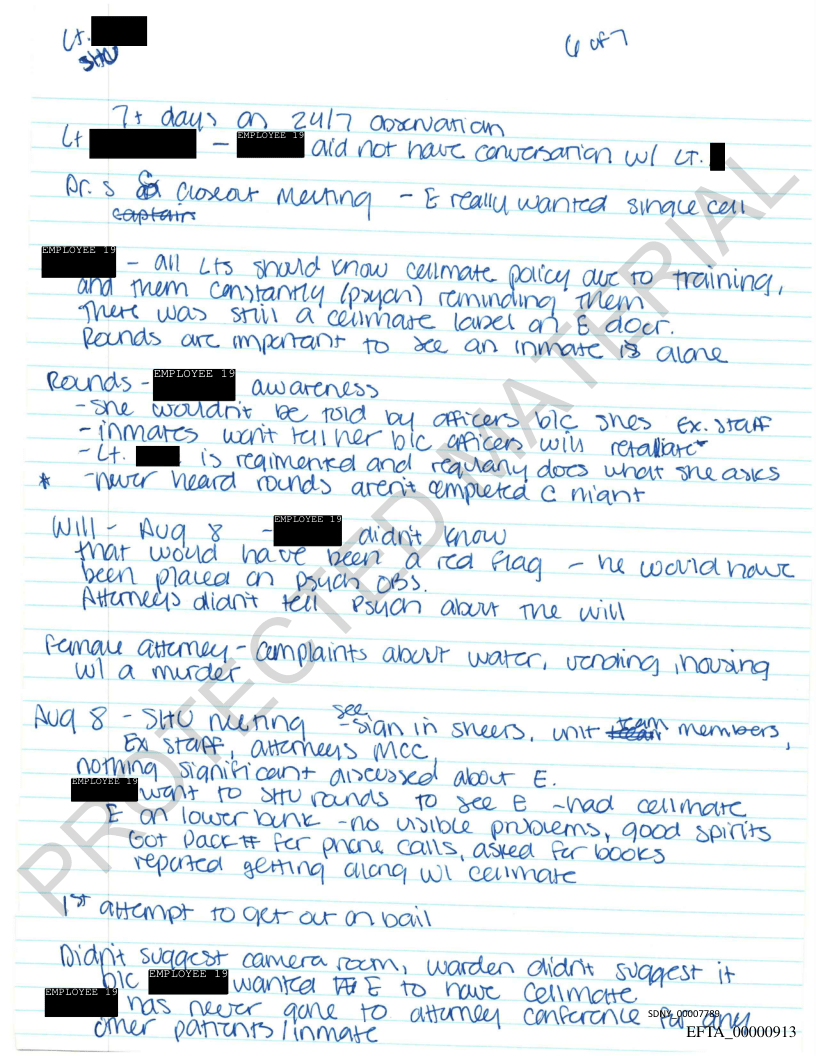 Lt.
SHU
6 of 7
7+ days on 24/7 observation
Lt — EMPLOYEE 19 did not have conversation w/ Lt.
Dr. S closeout meeting - E really wanted single cell
captain
EMPLOYEE 19 - all Lts should know cellmate policy due to training,
and them constantly (psych) reminding them
There was still a cellmate label on E door.
Rounds are important to see an inmate is alone
Rounds - EMPLOYEE 19 awareness
- she wouldn't be told by officers b/c shes Ex. staff
- inmates won't tell her b/c officers will retaliate*
- Lt. is regimented and regularly does what she asks
* - never heard rounds aren't completed @ night
Will - Aug 8 - EMPLOYEE 19 didn't know
that would have been a red flag - he would have
been placed on psych OBS.
Attorneys didn't tell psych about the will
Female attorney - complaints about water, vending, housing
w/ a murder
Aug 8 - SHU meeting - see sign in sheets, unit team members,
Ex staff, attorneys MCC
nothing significant discussed about E.
EMPLOYEE 19 went to SHU rounds to see E - had cellmate
E on lower bunk - no visible problems, good spirits
Got Pack # for phone calls, asked for books
reported getting along w/ cellmate
1st attempt to get out on bail
Didn't suggest camera room, warden didn't suggest it
b/c EMPLOYEE 19 wanted E to have cellmate
EMPLOYEE 19 has never gone to attorney conference for any
other patients/inmate
SDNY_00007789
EFTA_00000913
PROTECTED MATERIAL